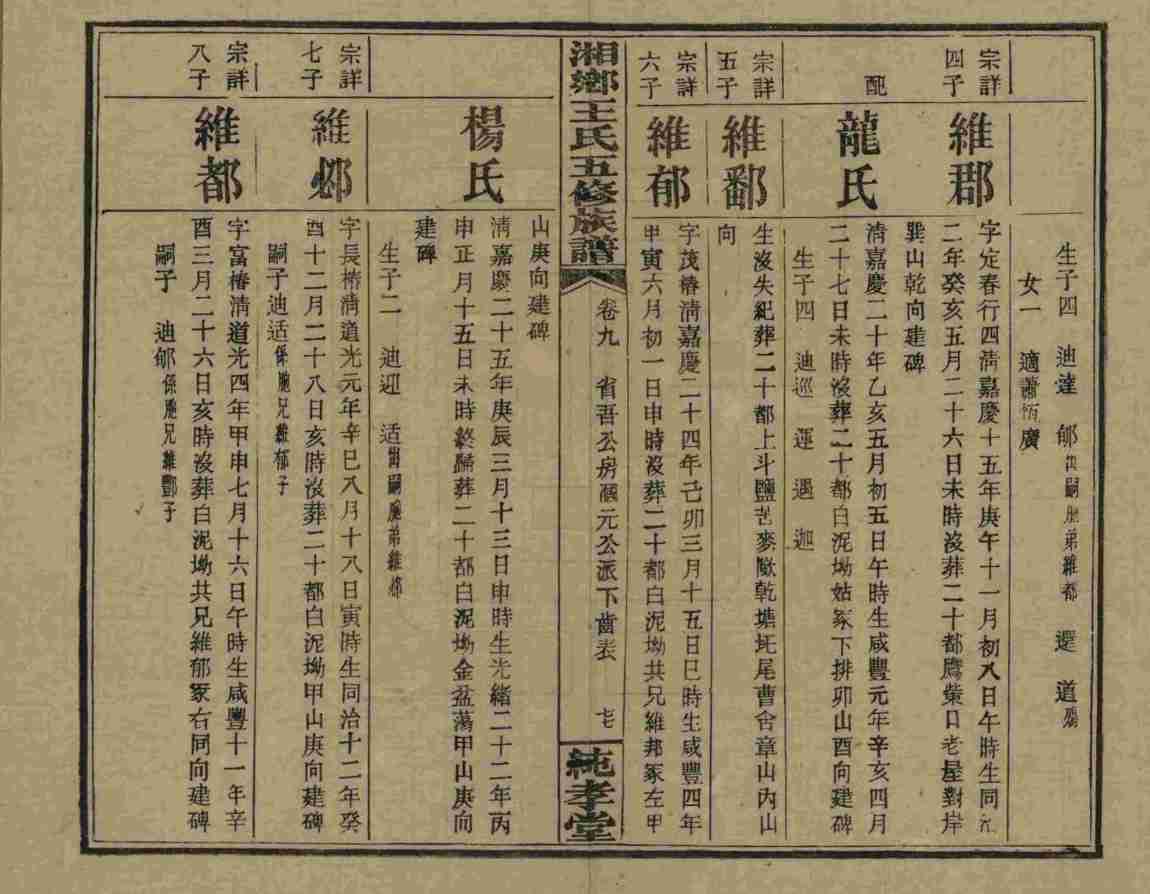 生子四　迪達　郇出嗣胞弟維都　選　道殤
女一　適蕭恆廣
宗詳四子
維郡
字定春行四清嘉慶十五年庚午十一月初八日午時生同治
二年癸亥五月二十六日未時沒葬二十都鷹嘴口老屋對岸
巽山乾向建碑
配
龍氏
清嘉慶二十年乙亥五月初五日午時生咸豐元年辛亥四月
二十七日未時沒葬二十都白泥坳姑冢下排卯山酉向建碑
生子四　迪巡　運　遇　迦
宗詳五子
維鄱
生沒失紀葬二十都上斗鹽苦麥歐乾塘坵尾曹舍章山內山
向
宗詳六子
維郁
字茂椿清嘉慶二十四年己卯三月十五日巳時生咸豐四年
甲寅六月初一日申時沒葬二十都白泥坳共兄維邦冢左甲
湘鄉王氏五修族譜
卷九　省吾公房　元公派下齒表　七七
純孝堂
山庚向建碑
楊氏
清嘉慶二十五年庚辰三月十三日申時生光緒二十二年丙
申正月十五日未時終歸葬二十都白泥坳金盆蕩甲山庚向
建碑
生子二　迪迎　适出嗣胞弟維邲
宗詳七子
維邲
字長椿清道光元年辛巳八月十八日寅時生同治十二年癸
酉十二月二十八日亥時沒葬二十都白泥坳甲山庚向建碑
嗣子迪适係胞兄維郁子
宗詳八子
維都
字富椿清道光四年甲申七月十六日午時生咸豐十一年辛
酉三月二十六日亥時沒葬白泥坳共兄維郁冢右同向建碑
嗣子　迪郇係胞兄維酆子